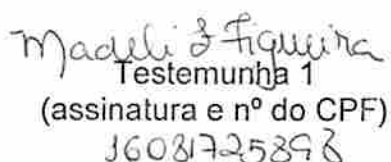 Madeli L Figueira
Testemunha 1
(assinatura e nº do CPF)
16081725898